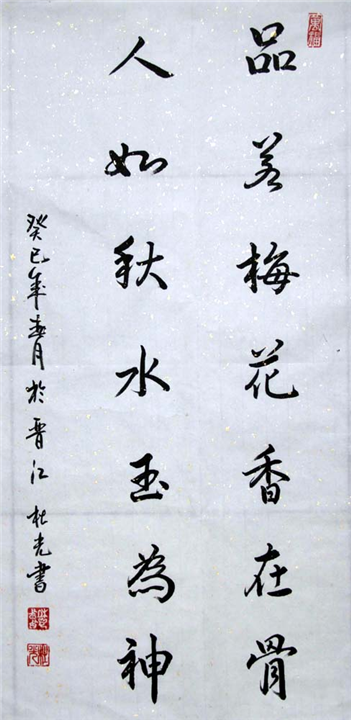 品若梅花香在骨
人如秋水玉為神
癸巳年春月於晋江 杜光書